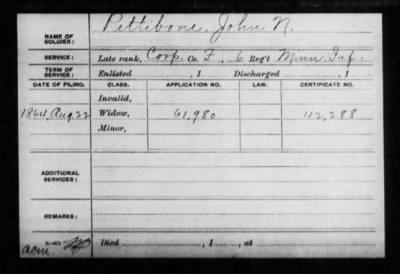 NAME OF SOLDIER: Pettibone, John N.
SERVICE: Late rank, Corp. Co. F, 6 Reg't Minn. Inf.
TERM OF SERVICE: Enlisted , 1 Discharged , 1
DATE OF FILING. CLASS. APPLICATION NO. LAW. CERTIFICATE NO.
Invalid,
1864, Aug. 22 Widow, 61,980 42,288
Minor,
ADDITIONAL SERVICES:
REMARKS:
Died , 1 , at
acm.